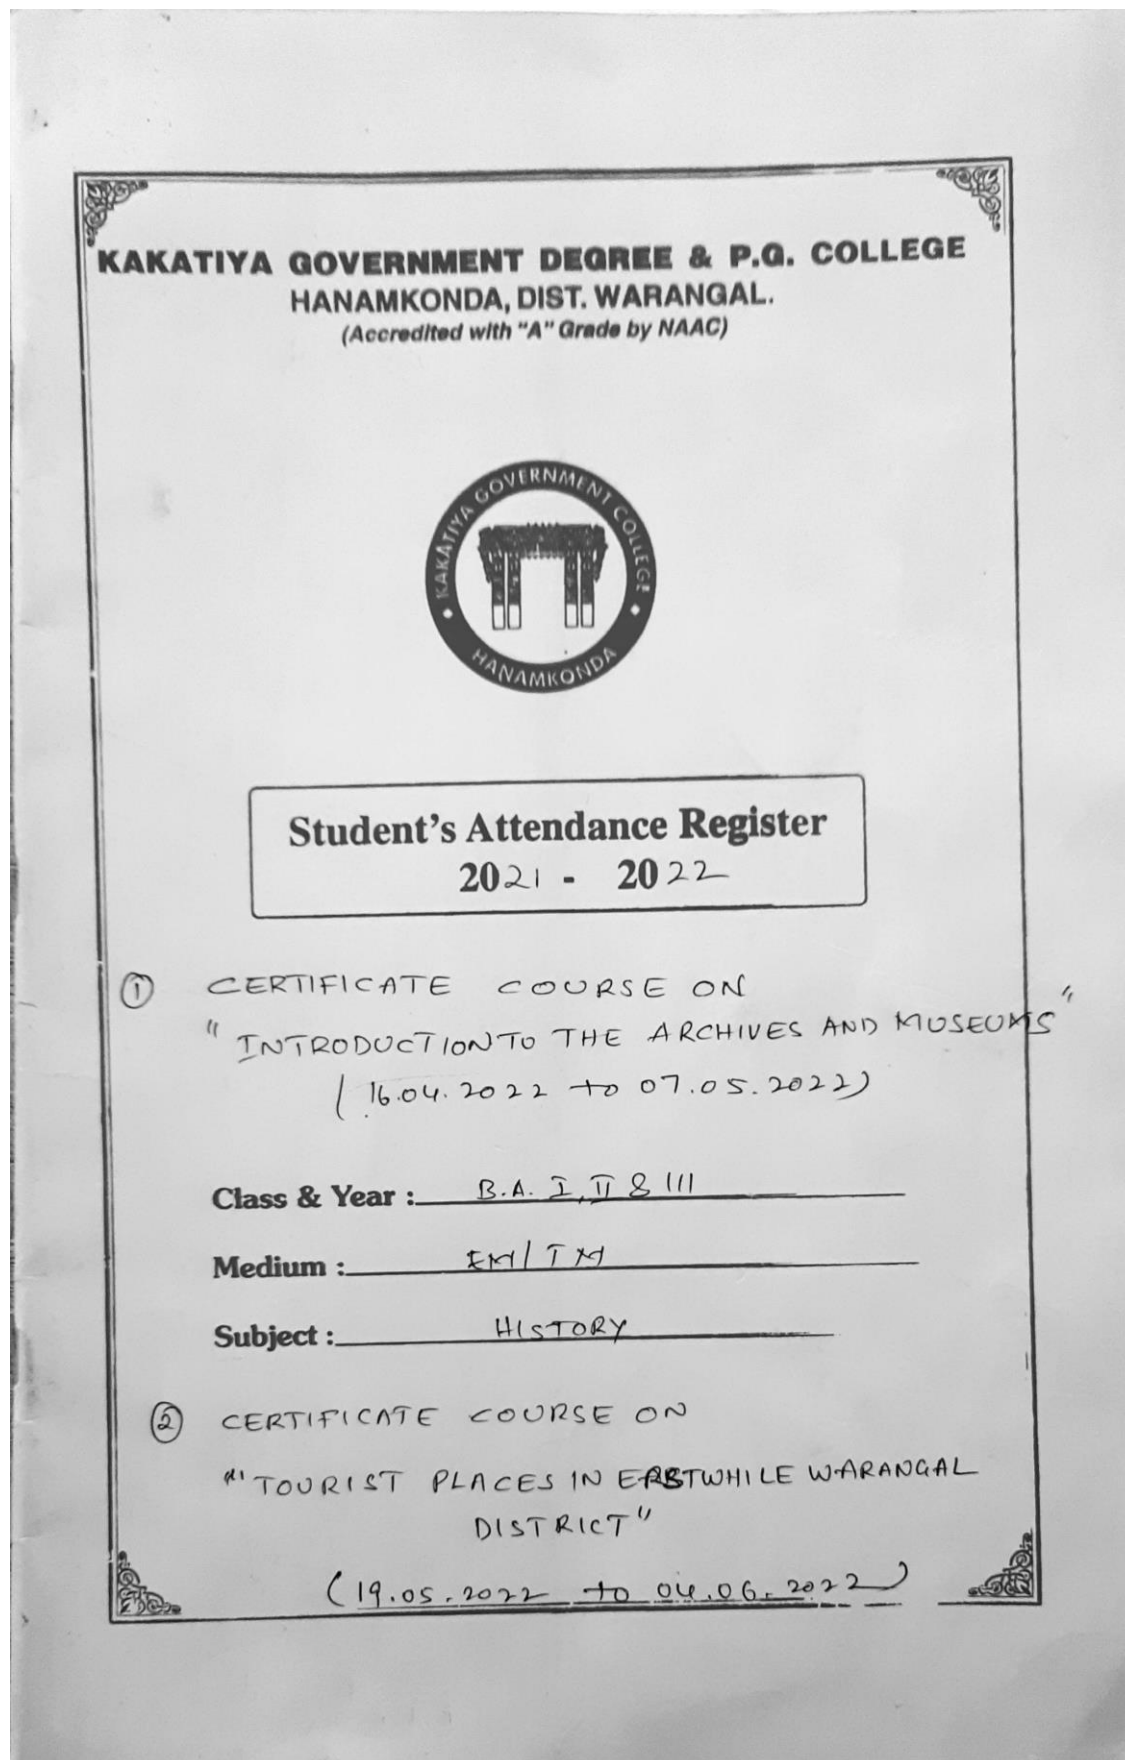 KAKATIYA GOVERNMENT DEGREE & P.G. COLLEGE
HANAMKONDA, DIST. WARANGAL.
(Accredited with "A" Grade by NAAC)
KAKATIYA GOVERNMENT COLLEGE
HANAMKONDA
Student's Attendance Register
2021 - 2022
① CERTIFICATE COURSE ON
"INTRODUCTION TO THE ARCHIVES AND MUSEUMS"
(16.04.2022 to 07.05.2022)
Class & Year : B.A. I, II & III
Medium : EM/TM
Subject : HISTORY
② CERTIFICATE COURSE ON
"TOURIST PLACES IN ERSTWHILE WARANGAL
DISTRICT"
(19.05.2022 to 04.06.2022)